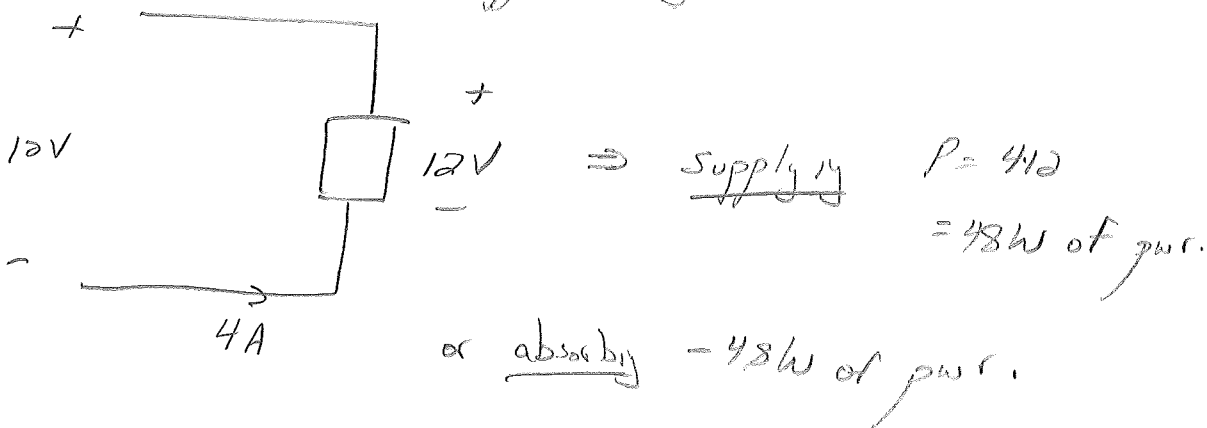 +
+
12V
12V ⇒ supplying P = 4·12
= 48W of pwr.
-
-
4A
or absorbing -48W of pwr.